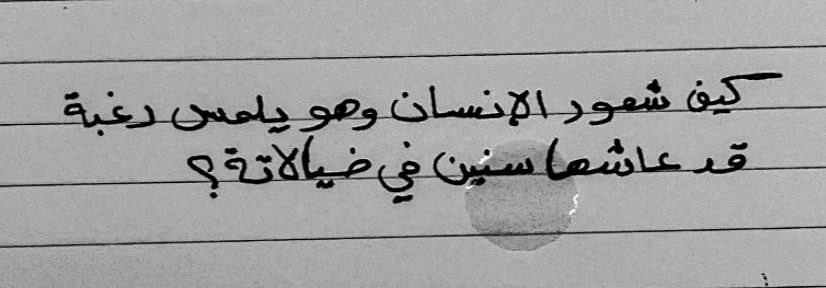 كيف شعور الإنسان وهو يلمس رغبة
قد عاشها سنين في خيالاتة؟